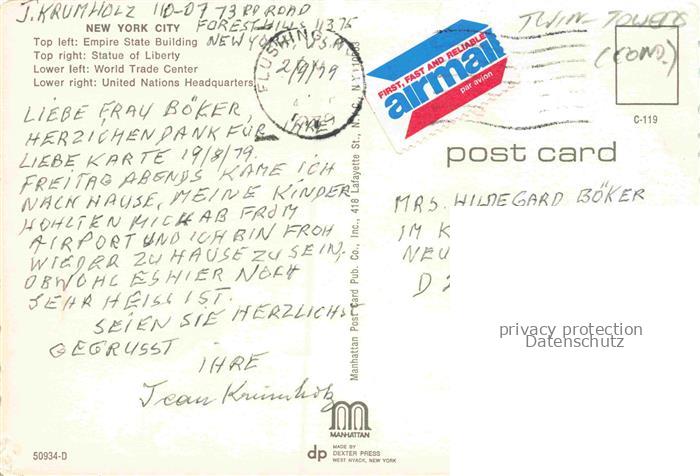 J. KRUMHOLZ 110-07 73 RD ROAD
FOREST HILLS 11375
NEW YORK CITY
Top left: Empire State Building
NEW YORK, USA
Top right: Statue of Liberty
Lower left: World Trade Center
Lower right: United Nations Headquarters
FLUSHING
2/9/79
LIEBE FRAU BÖKER,
HERZLICHEN DANK FÜR IHRE
LIEBE KARTE 19/8/79.
FREITAG ABENDS KAME ICH
NACH HAUSE, MEINE KINDER
HOHLTEN MICH AB FROM
AIRPORT UND ICH BIN FROH
WIEDER ZU HAUSE ZU SEIN,
OBWOHL ES HIER NOCH
SEHR HEISS IST.
SEIEN SIE HERZLICHST
GEGRÜSST
IHRE
Jean Krumholz
50934-D
Manhattan Post Card Pub. Co., Inc., 418 Lafayette St., N.Y.
MANHATTAN
dp
MADE BY
DEXTER PRESS
WEST NYACK, NEW YORK
FIRST, FAST AND RELIABLE
airmail
par avion
TWIN TOWERS
(COND.)
C-119
post card
MRS. HILDEGARD BÖKER
IM K
NEU
D 2
privacy protection
Datenschutz